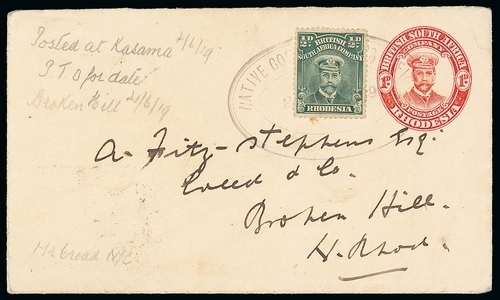 Posted at Kasama 2/6/19
P.T.O for date
Broken Hill 21/6/19
½d. ½d.
BRITISH
SOUTH AFRICA COMPANY
RHODESIA
NATIVE
BRITISH SOUTH AFRICA
COMPANY
1d. 1d.
POSTAGE
RHODESIA
A. Fitz-Stephens Esq.
Broken Hill.
N. Rhod.